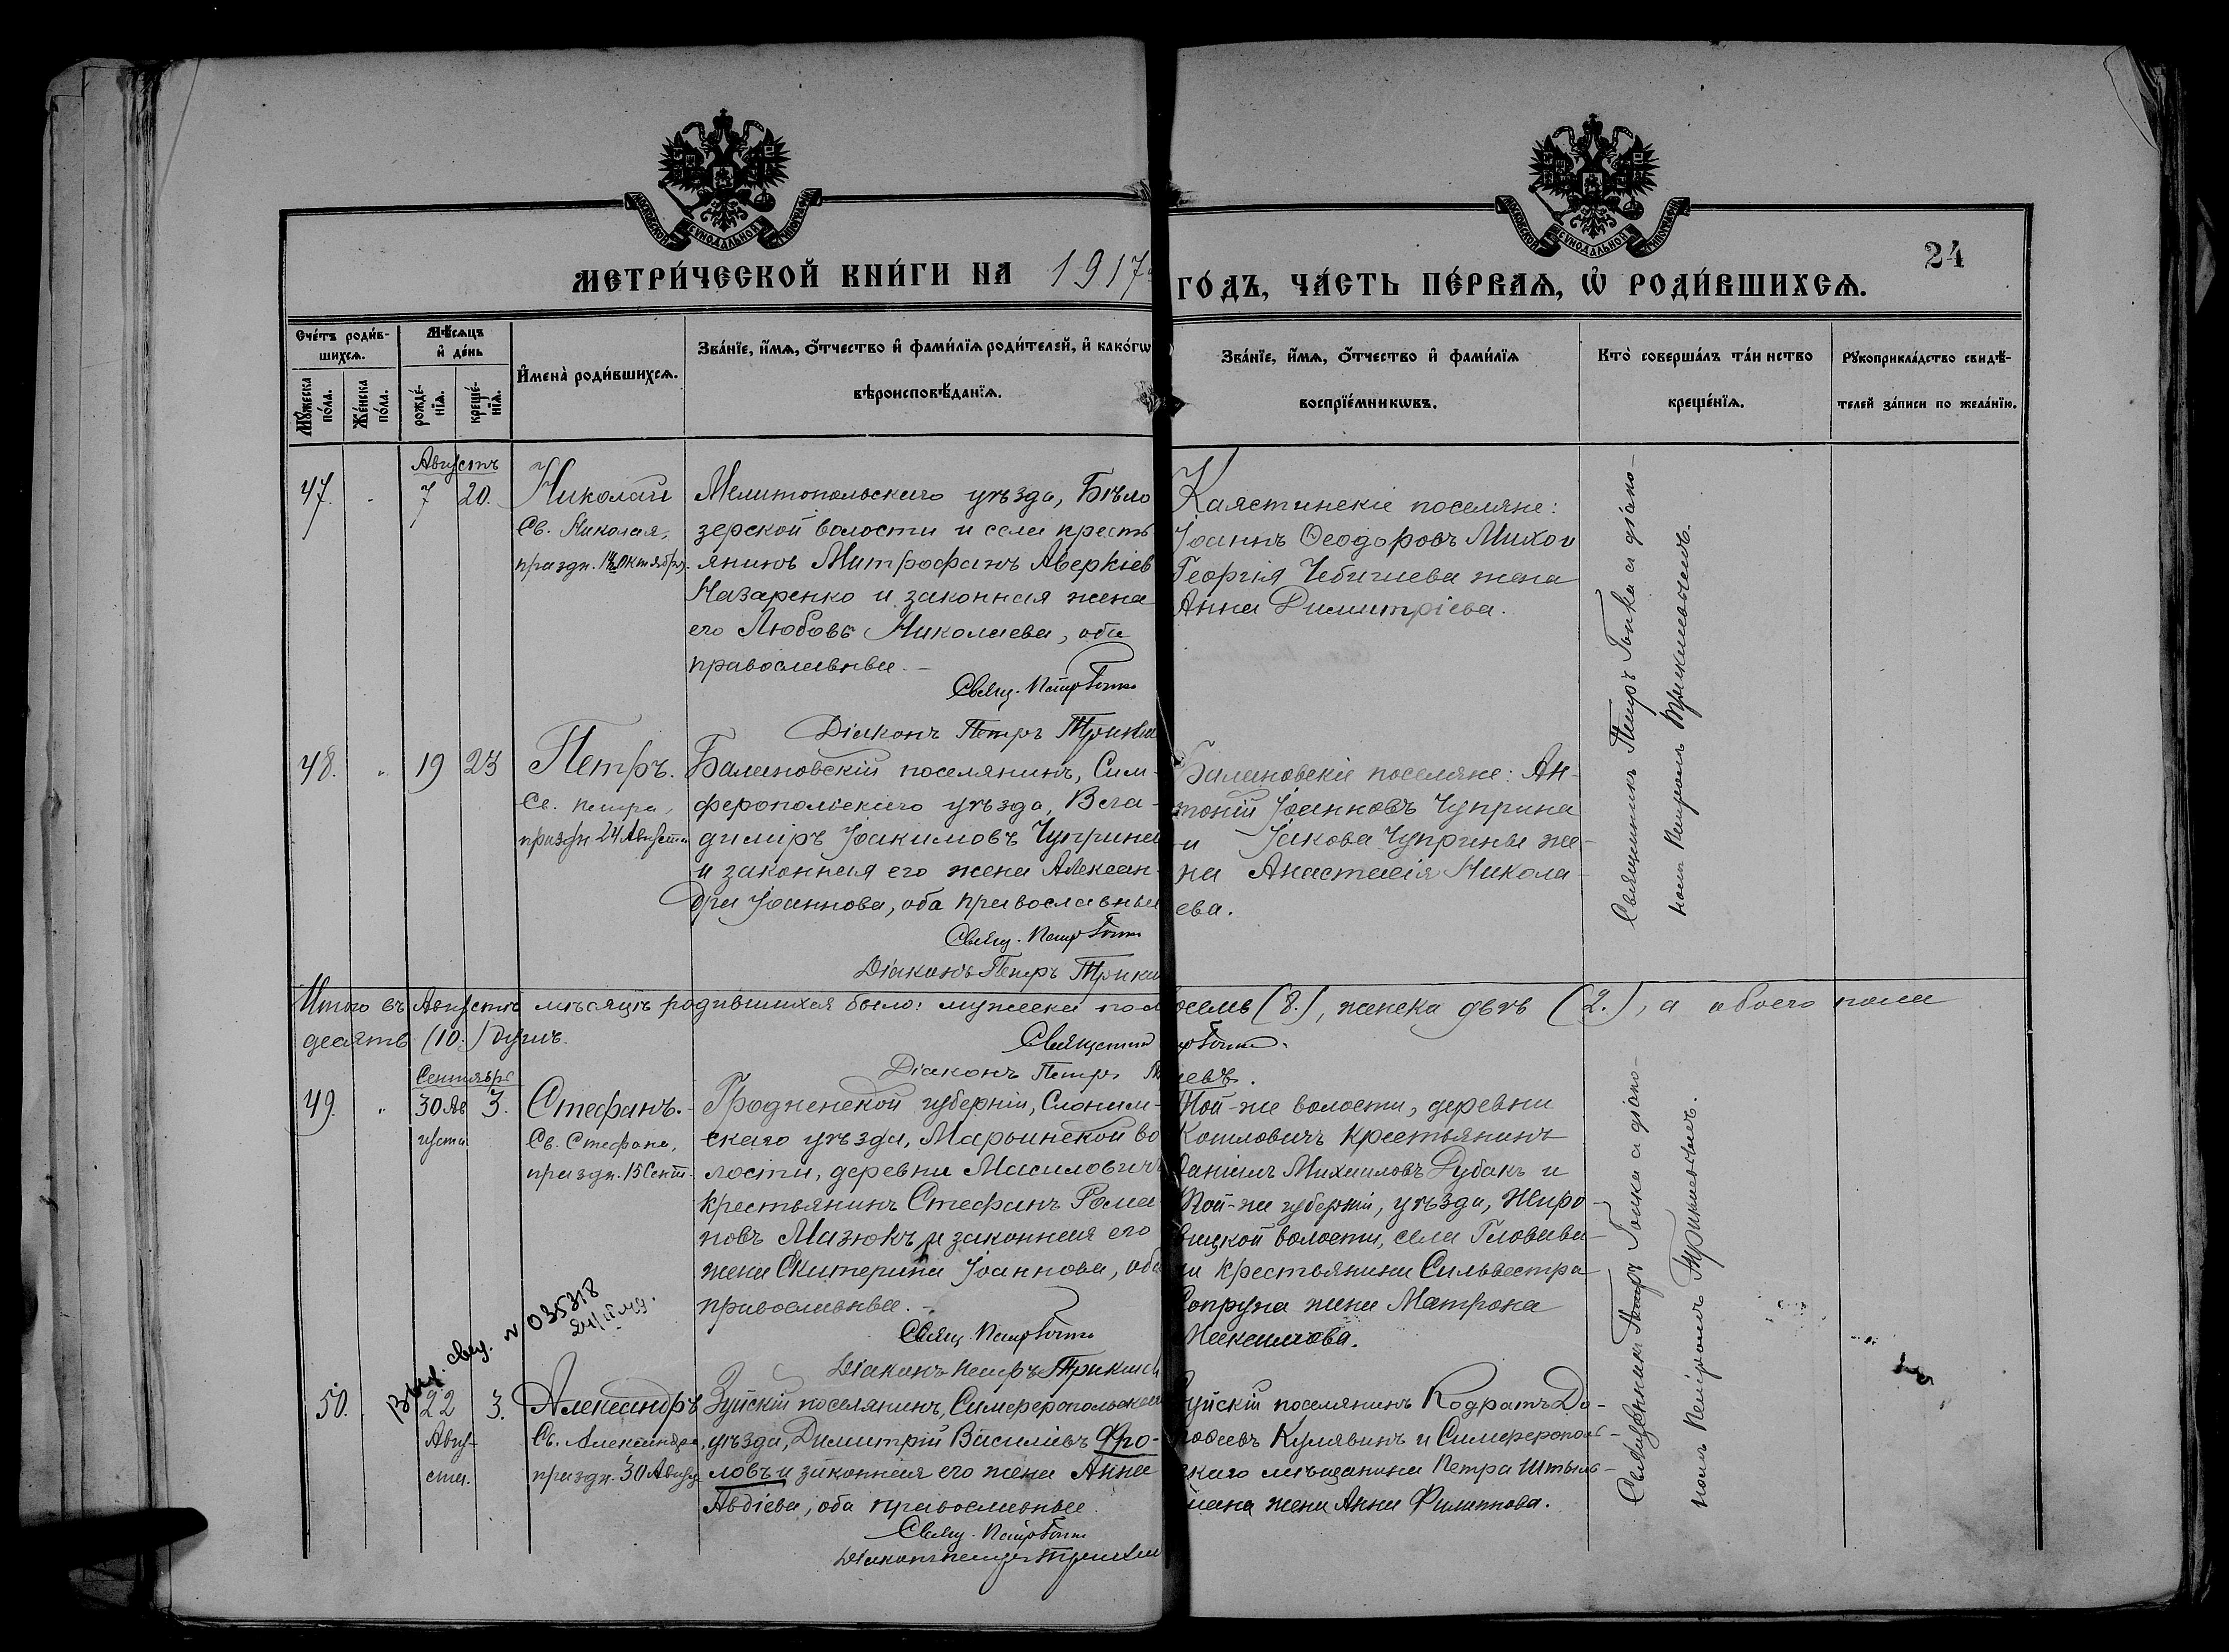 МОСКОВСКОЙ СѴНОДАЛЬНОЙ ТИПОГРАФІИ
МОСКОВСКОЙ СѴНОДАЛЬНОЙ ТИПОГРАФІИ
24
МЕТРИ́ЧЕСКОЙ КНИ́ГИ НА 1917
ГО́ДЪ, ЧА́СТЬ ПЕ́РВАѦ, Ѡ҆ РОДИ́ВШИХСѦ.
Сче́тъ роди́в-
шихсѧ.
Мꙋ́жеска по́ла.
Же́нска по́ла.
Мѣ́сѧцъ
и҆ де́нь
рожде́-
нїѧ.
креще́-
нїѧ.
И҆мена̀ роди́вшихсѧ.
Зва́нїе, и҆́мѧ, ѻ҆́тчество и҆ фами́лїѧ роди́телей, и҆ како́гѡ
вѣроисповѣ́данїѧ.
Зва́нїе, и҆́мѧ, ѻ҆́тчество и҆ фами́лїѧ
воспрїе́мникѡвъ.
Кто̀ соверша́лъ та́инство
креще́нїѧ.
Рꙋкоприкла́дство свидѣ́-
телей за́писи по жела́нїю.
Августъ
47. 7 20.
Николай
Св. Николая,
праздн. октября.
Мелитопольскаго уѣзда, Бѣло
зерской волости и села кресть
янинъ Митрофанъ Аверкіев
Назаренко и законная жена
его Любовь Николаева, оба
православные.
Свящ. Петр Гопка
Діаконъ Петръ Трикил
Каястинскіе поселяне:
Іоаннъ Ѳеодоровъ Михо
Георгія Чебичева жена
Анна Димитріева.
Священникъ Петръ Гопка а діако-
номъ Петромъ
48. 19 23
Петръ.
Св. Петра,
праздн. 24 Августа
Балановскій поселянинъ, Сим-
феропольскаго уѣзда, Вла-
диміръ Іоакимовъ Чуприна
и законная его жена Алексан-
дра Іоаннова, оба православны
Свящ. Петр Гопка
Діаконъ Петръ Трики
Балановскіе поселяне: Ан-
тоній Іоанновъ Чуприна
и Іакова Чуприны же-
на Анастасія Никола-
ева.
Итого въ Августѣ мѣсяцѣ родившихся было: мужеска пол осемь (8.), женска двѣ (2.), а обоего пола
десять (10.) душъ.
Священни
Діаконъ Петръ
Сентябрь
49. 30 Ав 3.
густа
Стефанъ.
Св. Стефана,
праздн. 15 Сент.
Гродненской губерніи, Слоним-
скаго уѣзда, Марьинской во
лости, деревни Масиловичъ
крестьянинъ Стефанъ Рома
новъ Мазюкъ и законная его
жена Екатерина Іоаннова, оба
православные.
Свящ. Петр Гопка
Діаконъ Петръ Трикил
Той-же волости, деревни
Котловичъ крестьянинъ
Даніилъ Михаиловъ Дубакъ и
Той-же губерніи, уѣзда, Жиро-
вицкой волости, села
крестьянина Сильвестра
Сопруна жена Матрона
Максимова.
Священникъ Петръ Гопка а діако-
номъ Петромъ
Выд. свид. № 035318
50. 22 3.
Авгу-
ста.
Александръ
Св. Александра,
праздн. 30 Август
Зуйскій поселянинъ, Симферопольскаго
уѣзда, Димитрій Василіевъ Фро-
ловъ и законная его жена Анна
Авдіева, оба православные.
Свящ. Петр Гопка
Діаконъ Петръ
уйскій поселянинъ Кодратъ До-
Кулявинъ и Симферополь-
скаго мѣщанина Петра Штыль-
мана жена Анна Филиппова.